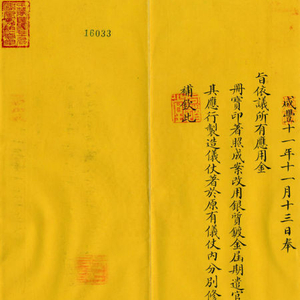 咸豐十一年十一月十三日奉
旨依議所有應用金
冊寶印著照成案改用銀質鍍金屆期遣官
其應行製造儀仗著於原有儀仗內分別修
補欽此
16033